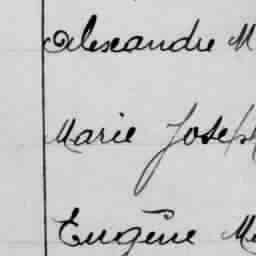 Alexandre M
Marie Joseph
Eugène Ma